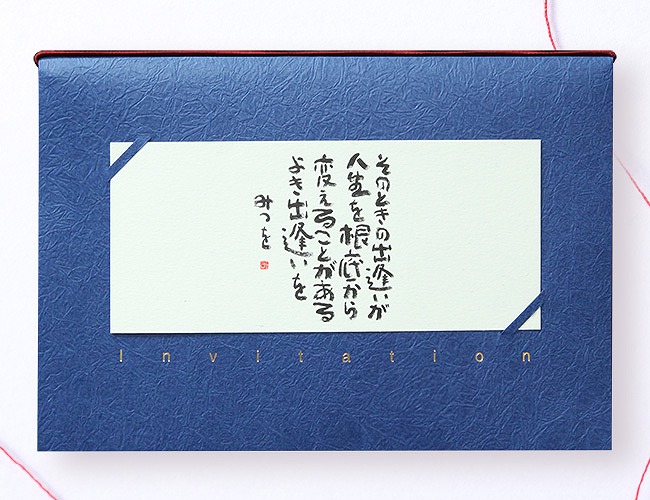 そのときの出逢いが
人生を根底から
変えることがある
よき出逢いを
みつを
Invitation